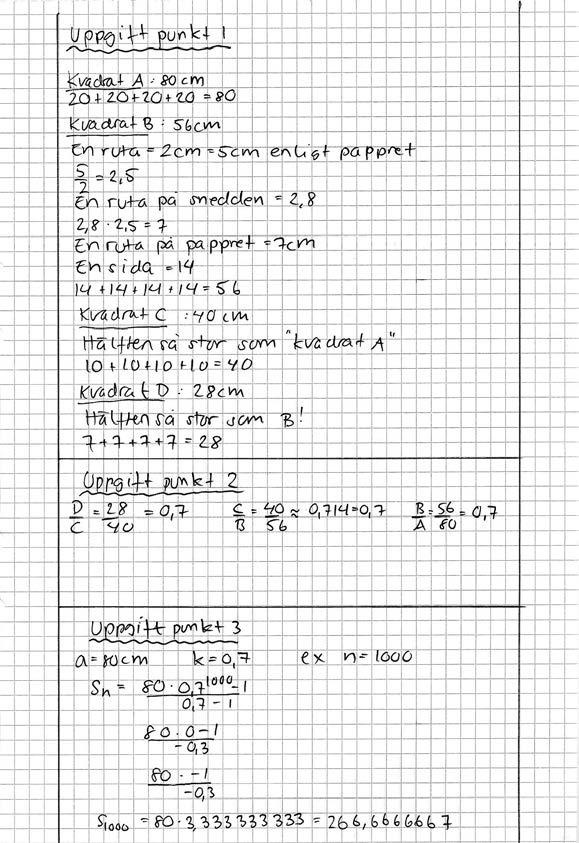 Uppgift punkt 1
Kvadrat A : 80 cm
20+20+20+20 = 80
Kvadrat B : 56cm
En ruta = 2cm = 5cm enligt pappret
5/2 = 2,5
En ruta på snedden = 2,8
2,8 · 2,5 = 7
En ruta på pappret = 7cm
En sida = 14
14 + 14 + 14 + 14 = 56
Kvadrat C : 40 cm
Hälften så stor som "kvadrat A"
10 + 10 + 10 + 10 = 40
Kvadrat D : 28cm
Hälften så stor som B!
7 + 7 + 7 + 7 = 28
Uppgift punkt 2
D/C = 28/40 = 0,7 C/B = 40/56 ≈ 0,714=0,7 B/A = 56/80 = 0,7
Uppgift punkt 3
a = 80cm k = 0,7 ex n = 1000
Sn = 80 · 0,7^1000 - 1 / 0,7 - 1
80 · 0 - 1 / -0,3
80 · -1 / -0,3
S1000 = 80 · 3,333333333 = 266,6666667